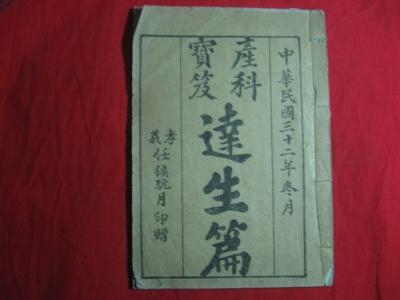 中華民國三十二年冬月
產科
寶笈
達生篇
孝義任侯玩月印贈